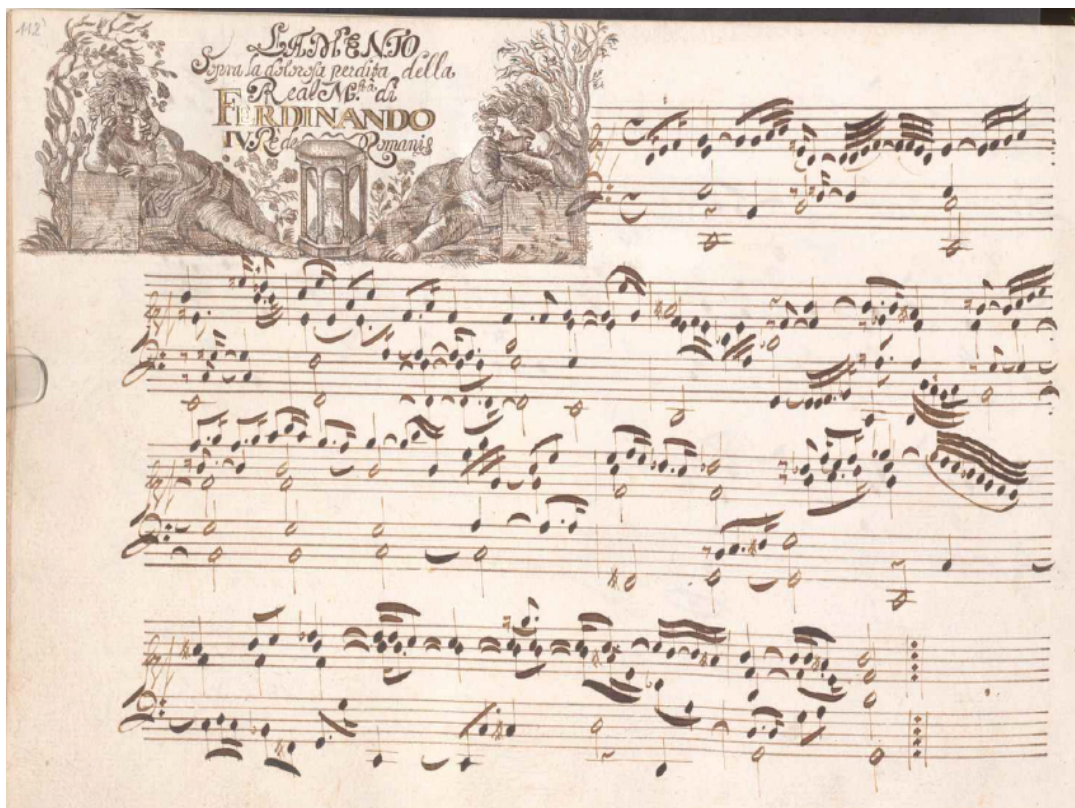 112
LAMENTO
Sopra la dolorosa perdita della
Real M.stà di
FERDINANDO
IV. Rè de Romani